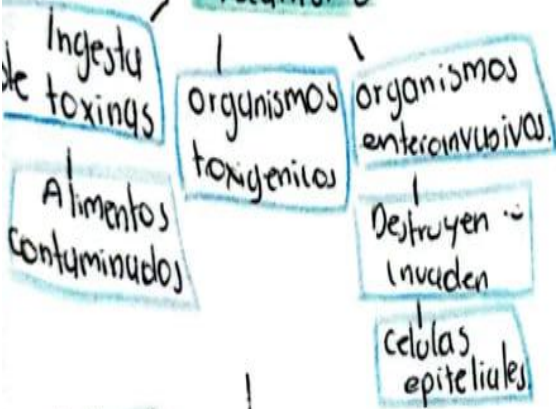 Ingesta
de toxinas
Alimentos
contaminados
organismos
toxigenicos
organismos
enteroinvasivos.
Destruyen
invaden
celulas
epiteliales.